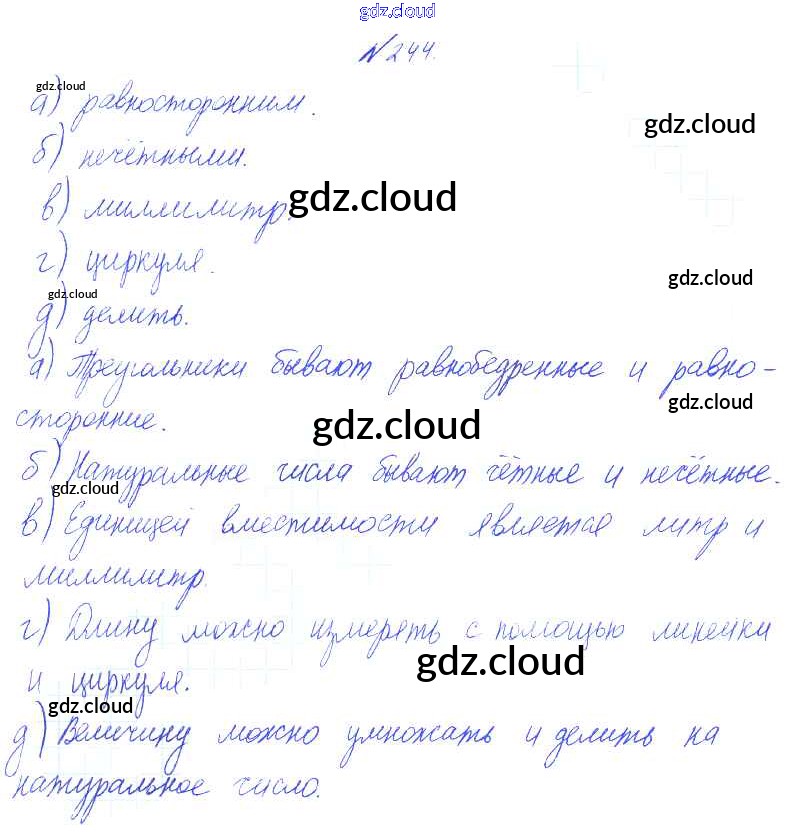 gdz.cloud
№244.
gdz.cloud
а) равносторонним.
gdz.cloud
б) нечётными.
в) миллилитр. gdz.cloud
г) циркуля.
gdz.cloud
gdz.cloud
д) делить.
а) Треугольники бывают равнобедренные и равно-
gdz.cloud
сторонние.
gdz.cloud
б) Натуральные числа бывают чётные и нечётные.
gdz.cloud
в) Единицей вместимости является литр и
миллилитр.
г) Длину можно измерять с помощью линейки
и циркуля.
gdz.cloud
gdz.cloud
д) Величину можно умножать и делить на
натуральное число.